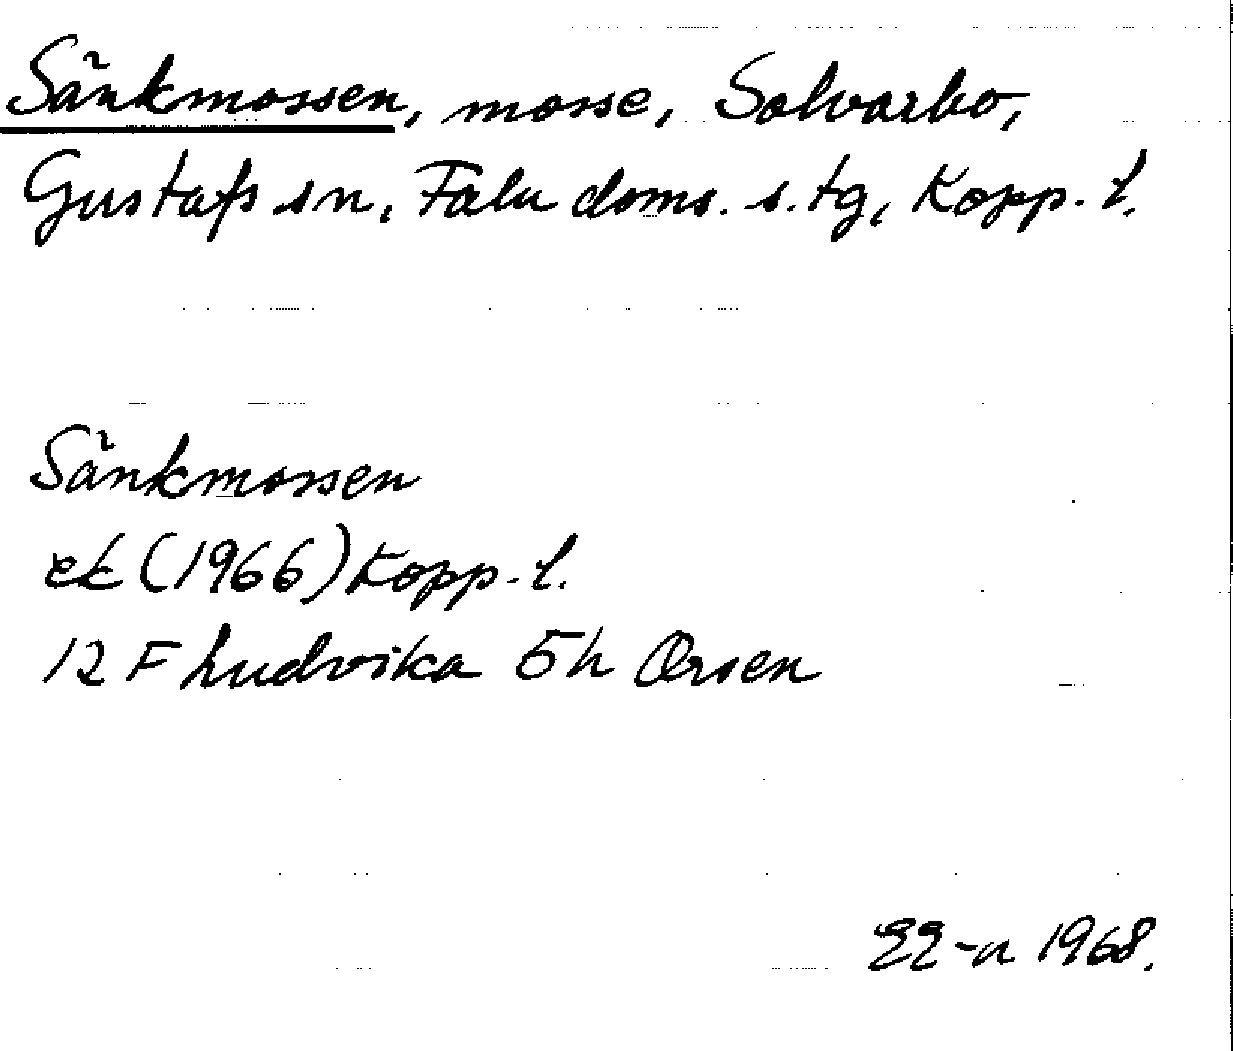 Sänkmossen, mosse, Solvarbo,
Gustafs sn, Falu doms. s. tg, Kopp. l.
Sänkmossen
ek (1966) Kopp. l.
12 F Ludvika 5h Orsen
EE-n 1968.